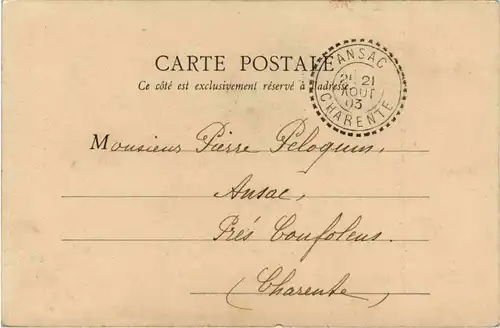 CARTE POSTALE
Ce côté est exclusivement réservé à l'adresse
ANSAC
2E 21
AOUT
03
CHARENTE
Monsieur Pierre Peloquin,
Ansac,
Près Confolens.
(Charente,